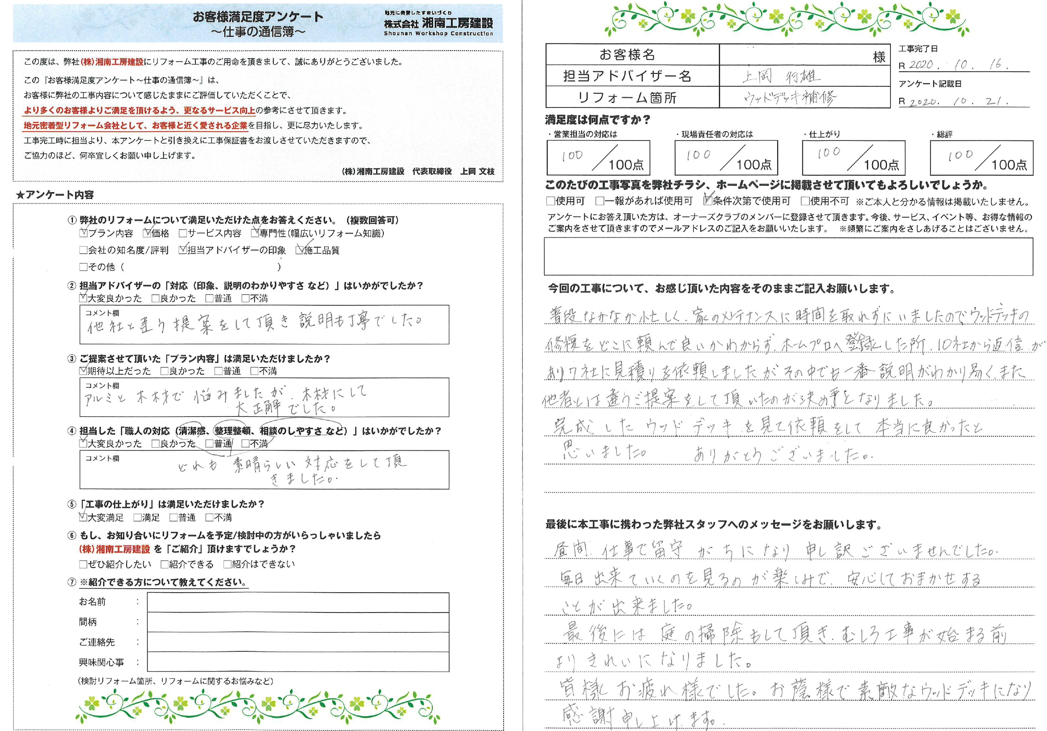 お客様満足度アンケート
～仕事の通信簿～
地元に発展したすまいづくり
株式会社 湘南工房建設
Shounan Workshop Construction
この度は、弊社(株)湘南工房建設にリフォーム工事のご用命を頂きまして、誠にありがとうございました。
この「お客様満足度アンケート～仕事の通信簿～」は、
お客様に弊社の工事内容について感じたままにご評価していただくことで、
より多くのお客様よりご満足を頂けるよう、更なるサービス向上の参考にさせて頂きます。
地元密着型リフォーム会社として、お客様と近く愛される企業を目指し、更に尽力いたします。
工事完了時に担当より、本アンケートと引き換えに工事保証書をお渡しさせていただきますので、
ご協力のほど、何卒宜しくお願い申し上げます。
(株)湘南工房建設 代表取締役 上岡 文枝
★アンケート内容
① 弊社のリフォームについて満足いただけた点をお答えください。（複数回答可）
☑プラン内容 ☑価格 □サービス内容 ☑専門性（幅広いリフォーム知識）
□会社の知名度/評判 ☑担当アドバイザーの印象 ☑施工品質
□その他（ ）
② 担当アドバイザーの「対応（印象、説明のわかりやすさ など）」はいかがでしたか？
☑大変良かった □良かった □普通 □不満
コメント欄
他社と違う提案をして頂き説明も丁寧でした。
③ ご提案させて頂いた「プラン内容」は満足いただけましたか？
☑期待以上だった □良かった □普通 □不満
コメント欄
アルミと木材で悩みましたが、木材にして
大正解でした。
④ 担当した「職人の対応（清潔感、整理整頓、相談のしやすさ など）」はいかがでしたか？
☑大変良かった □良かった □普通 □不満
コメント欄
どれも 素晴らしい対応をして頂
きました。
⑤ 「工事の仕上がり」は満足いただけましたか？
☑大変満足 □満足 □普通 □不満
⑥ もし、お知り合いにリフォームを予定/検討中の方がいらっしゃいましたら
(株)湘南工房建設 を「ご紹介」頂けますでしょうか？
□ぜひ紹介したい □紹介できる □紹介はできない
⑦ ※紹介できる方について教えてください。
お名前 ：
間柄 ：
ご連絡先 ：
興味関心事 ：
（検討リフォーム箇所、リフォームに関するお悩みなど）
お客様名 様
担当アドバイザー名 上岡 行雄
リフォーム箇所 ウッドデッキ補修
工事完了日
R 2020. 10. 16.
アンケート記載日
R 2020. 10. 21.
満足度は何点ですか？
・営業担当の対応は ・現場責任者の対応は ・仕上がり ・総評
100／100点 100／100点 100／100点 100／100点
このたびの工事写真を弊社チラシ、ホームページに掲載させて頂いてもよろしいでしょうか。
□使用可 □一報があれば使用可 ☑条件次第で使用可 □使用不可 ※ご本人と分かる情報は掲載いたしません。
アンケートにお答え頂いた方は、オーナーズクラブのメンバーに登録させて頂きます。今後、サービス、イベント等、お得な情報の
ご案内をさせて頂きますのでメールアドレスのご記入をお願いいたします。 ※頻繁にご案内をさしあげることはございません。
今回の工事について、お感じ頂いた内容をそのままご記入お願いします。
普段なかなか忙しく、家のメンテナンスに時間を取れずにいましたのでウッドデッキの
修復をどこに頼んで良いかわからず、ホームプロへ登録した所、10社から返信が
あり7社に見積りを依頼しましたがその中でも一番説明がわかり易く、また
他者とは違うご提案をして頂いたのが決め手となりました。
完成したウッドデッキを見て依頼をして本当に良かったと
思いました。 ありがとうございました。
最後に本工事に携わった弊社スタッフへのメッセージをお願いします。
昼間、仕事で留守がちになり申し訳ございませんでした。
毎日出来ていくのを見るのが楽しみで、安心しておまかせする
ことが出来ました。
最後には庭の掃除もして頂き、むしろ工事が始まる前
よりきれいになりました。
皆様お疲れ様でした。お蔭様で素敵なウッドデッキになり
感謝申し上げます。